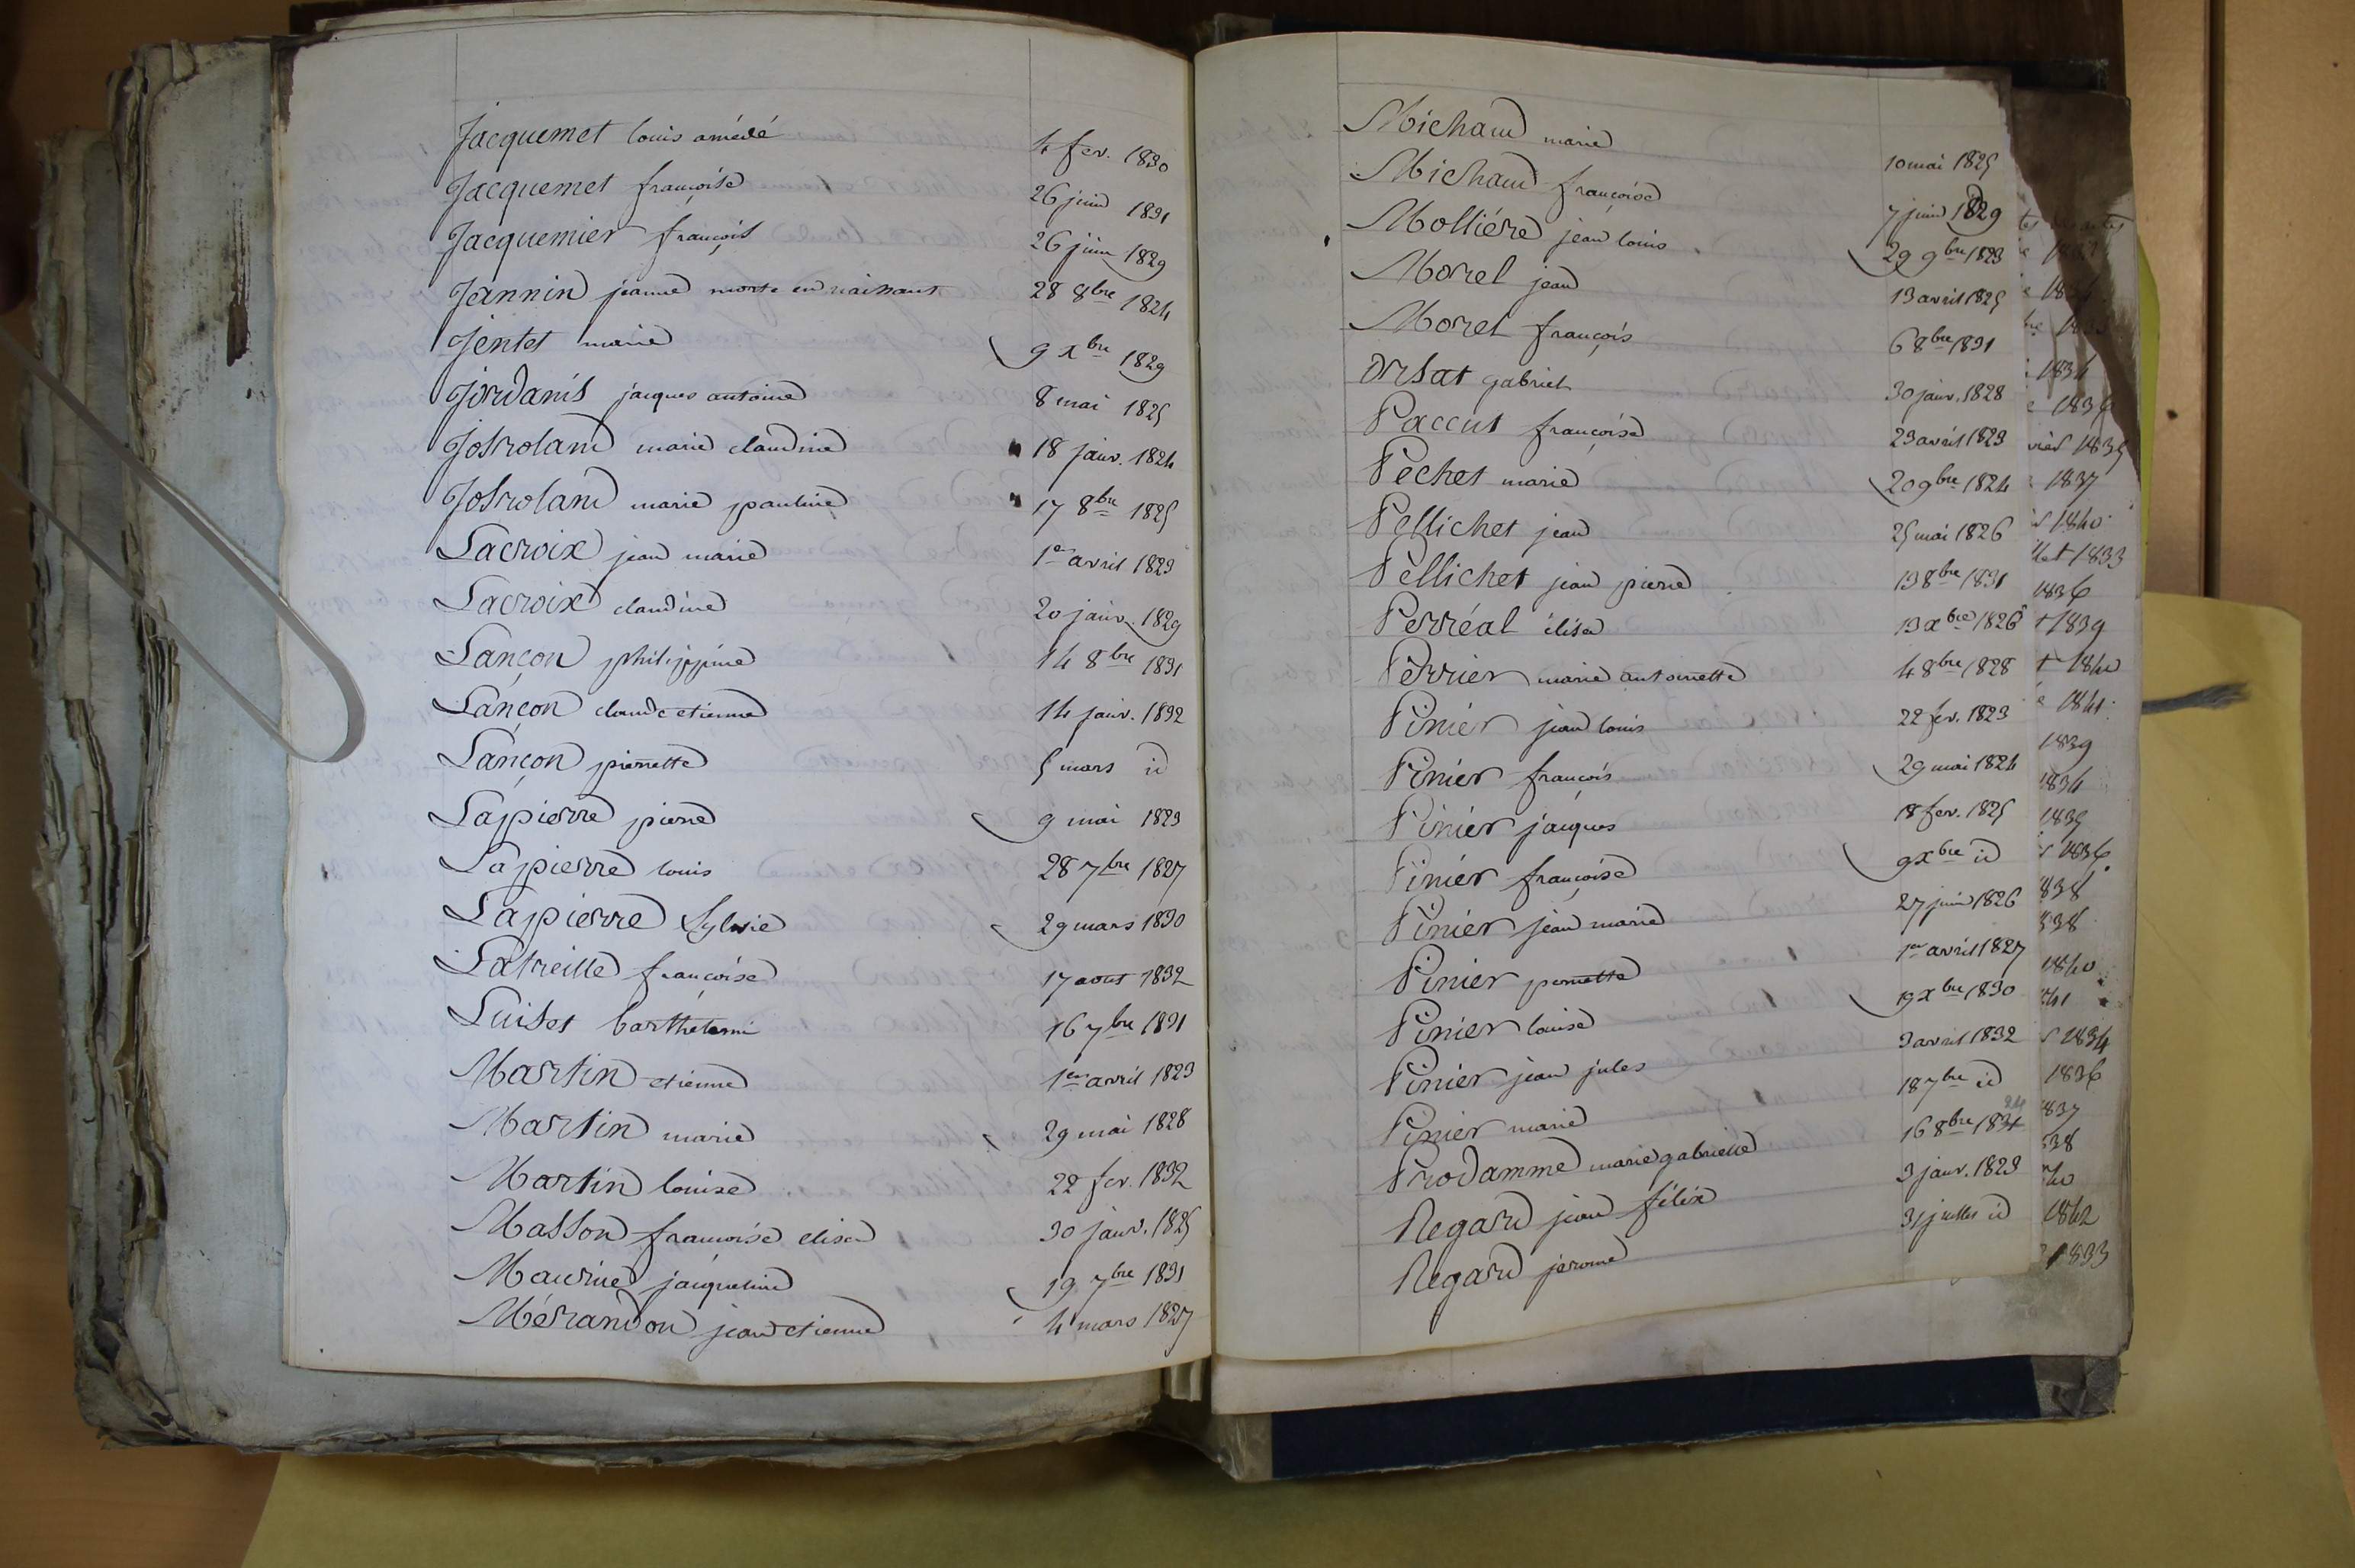 Jacquemet louis amédé 4 fev. 1830
Jacquemet françoise 26 juin 1831
Jacquemier françois 26 juin 1829
Jeannin jeanne morte en naissant 28 8bre 1824
Jentet marie 9 xbre 1829
Jordanis jacques antoine 8 mai 1825
Josroland marie claudine 18 janv. 1824
Josroland marie pauline 17 8bre 1825
Lacroix jean marie 1er avril 1823
Lacroix claudine 20 janv. 1829
Lançon philippine 14 8bre 1831
Lançon claude etienne 14 janv. 1832
Lançon pierrette 5 mars id
Lapierre pierre 9 mai 1823
Lapierre louis 28 7bre 1827
Lapierre Sylvie 29 mars 1830
Latreille françoise 17 aout 1832
Luiset barthelemi 16 7bre 1831
Martin etienne 1er avril 1823
Martin marie 29 mai 1828
Martin louise 22 fev. 1832
Masson françoise elisa 30 janv. 1825
Maurine jacqueline 19 7bre 1831
Mérandon jean etienne 4 mars 1827
Michaud marie 10 mai 1825
Michaud françoise 7 juin 1829
Mollière jean louis 29 9bre 1823
Morel jean 13 avril 1825
Morel françois 6 8bre 1831
Orsat gabriel 30 janv. 1828
Paccut françoise 23 avril 1823
Pechet marie 20 9bre 1824
Pellichet jean 25 mai 1826
Pellichet jean pierre 13 8bre 1831
Perréal élisa 13 xbre 1826
Perrier marie antoinette 4 8bre 1828
Pinier jean louis 22 fev. 1823
Pinier françois 29 mai 1824
Pinier jacques 18 fev. 1825
Pinier françoise 9 xbre id
Pinier jean marie 27 juin 1826
Pinier pernette 1er avril 1827
Pinier louise 19 xbre 1830
Pinier jean jules 3 avril 1832
Pinier marie 18 7bre id
Prodamme marie gabrielle 16 8bre 1831
Regard jean félix 3 janv. 1823
Regard jerome 31 juillet id
1834
1836
1835
1837
1840
1833
1836
1839
1840
1841
1839
1834
1835
1836
838
838
1840
1834
1836
837
838
1842
1833